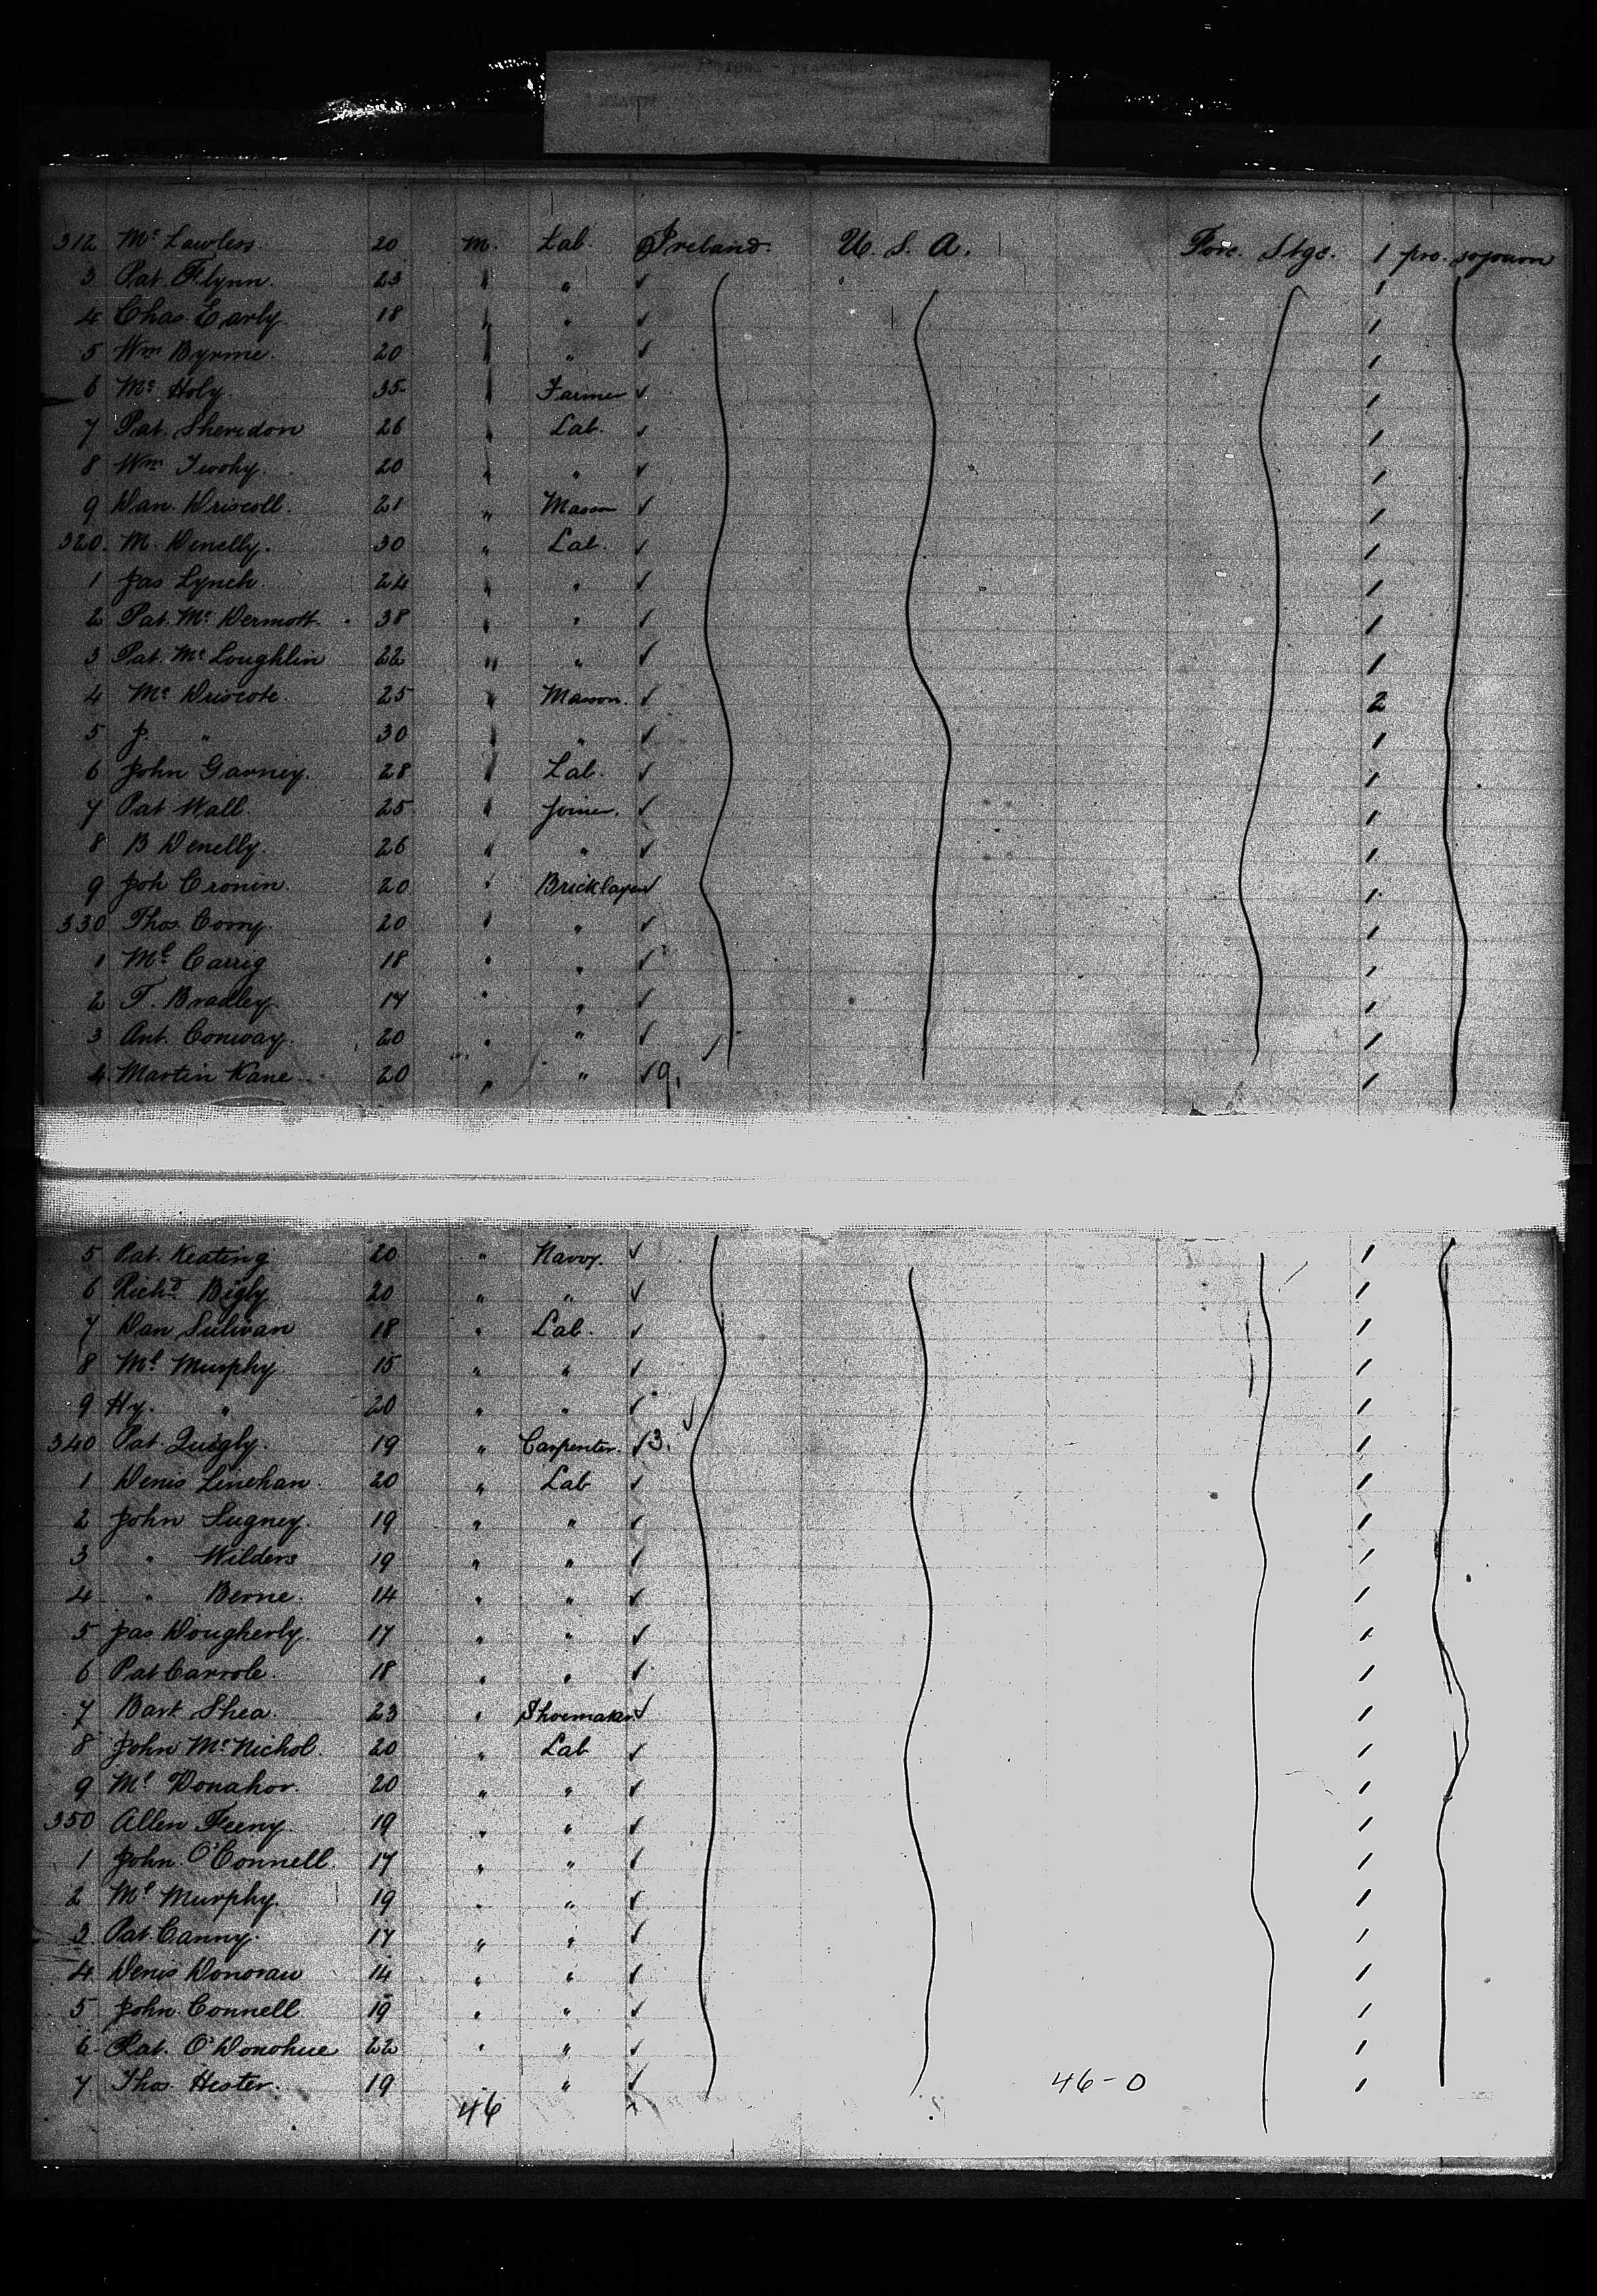 312 Mc Lawless. 20 M. Lab. Ireland. U. S. A. Forc. Stge. 1 pro. sojourn
3 Pat. Flynn. 23 " " ✓ 1
4 Chas. Early. 18 " " ✓ 1
5 Wm Byrne. 20 " " ✓ 1
6 Mc Holy. 35 " Farmer ✓ 1
7 Pat. Sheridon 26 " Lab. ✓ 1
8 Wm Twohy. 20 " " ✓ 1
9 Dan. Driscoll. 21 " Mason ✓ 1
320. M. Denelly. 30 " Lab. ✓ 1
1 Jas Lynch. 24 " " ✓ 1
2 Pat. Mc Dermott. 38 " " ✓ 1
3 Pat. Mc Loughlin 22 " " ✓ 1
4 Mc Driscole. 25 " Mason. ✓ 2
5 J. " 30 " " ✓ 1
6 John Garney. 28 " Lab. ✓ 1
7 Pat Wall 25 " Joiner. ✓ 1
8 B Denelly. 26 " " ✓ 1
9 Joh Cronin. 20 " Bricklayer ✓ 1
330 Thos. Corry. 20 " " ✓ 1
1 Ml Carrig 18 " " ✓ 1
2 T. Bradley. 17 " " ✓ 1
3 Ant. Conway. 20 " " ✓ 1
4. Martin Kane. 20 " " ✓ 9. 1
5 Pat. Keating 20 " Navvy. ✓ 1
6 Richd Bigly 20 " " ✓ 1
7 Dan Sulivan 18 " Lab. ✓ 1
8 Ml Murphy. 15 " " ✓ 1
9 Hy. " 20 " " ✓ 1
340 Pat Quigly. 19 " Carpenter. ✓ 3. 1
1 Denis Linehan. 20 " Lab ✓ 1
2 John Sugney. 19 " " ✓ 1
3 " Wilders 19 " " ✓ 1
4 " Berne. 14 " " ✓ 1
5 Jas Dougherly. 17 " " ✓ 1
6 Pat Carrole. 18 " " ✓ 1
7 Bart Shea. 23 " Shoemaker ✓ 1
8 John Mc Nichol. 20 " Lab ✓ 1
9 Ml Donahor. 20 " " ✓ 1
350 Allen Feeny 19 " " ✓ 1
1 John O'Connell. 17 " " ✓ 1
2 Ml Murphy. 19 " " ✓ 1
3 Pat Canny. 17 " " ✓ 1
4 Denis Donovan 14 " " ✓ 1
5 John Connell 19 " " ✓ 1
6 Pat. O'Donohue 22 " " ✓ 1
7 Thos. Hester. 19 " " ✓ 46-0 1
46